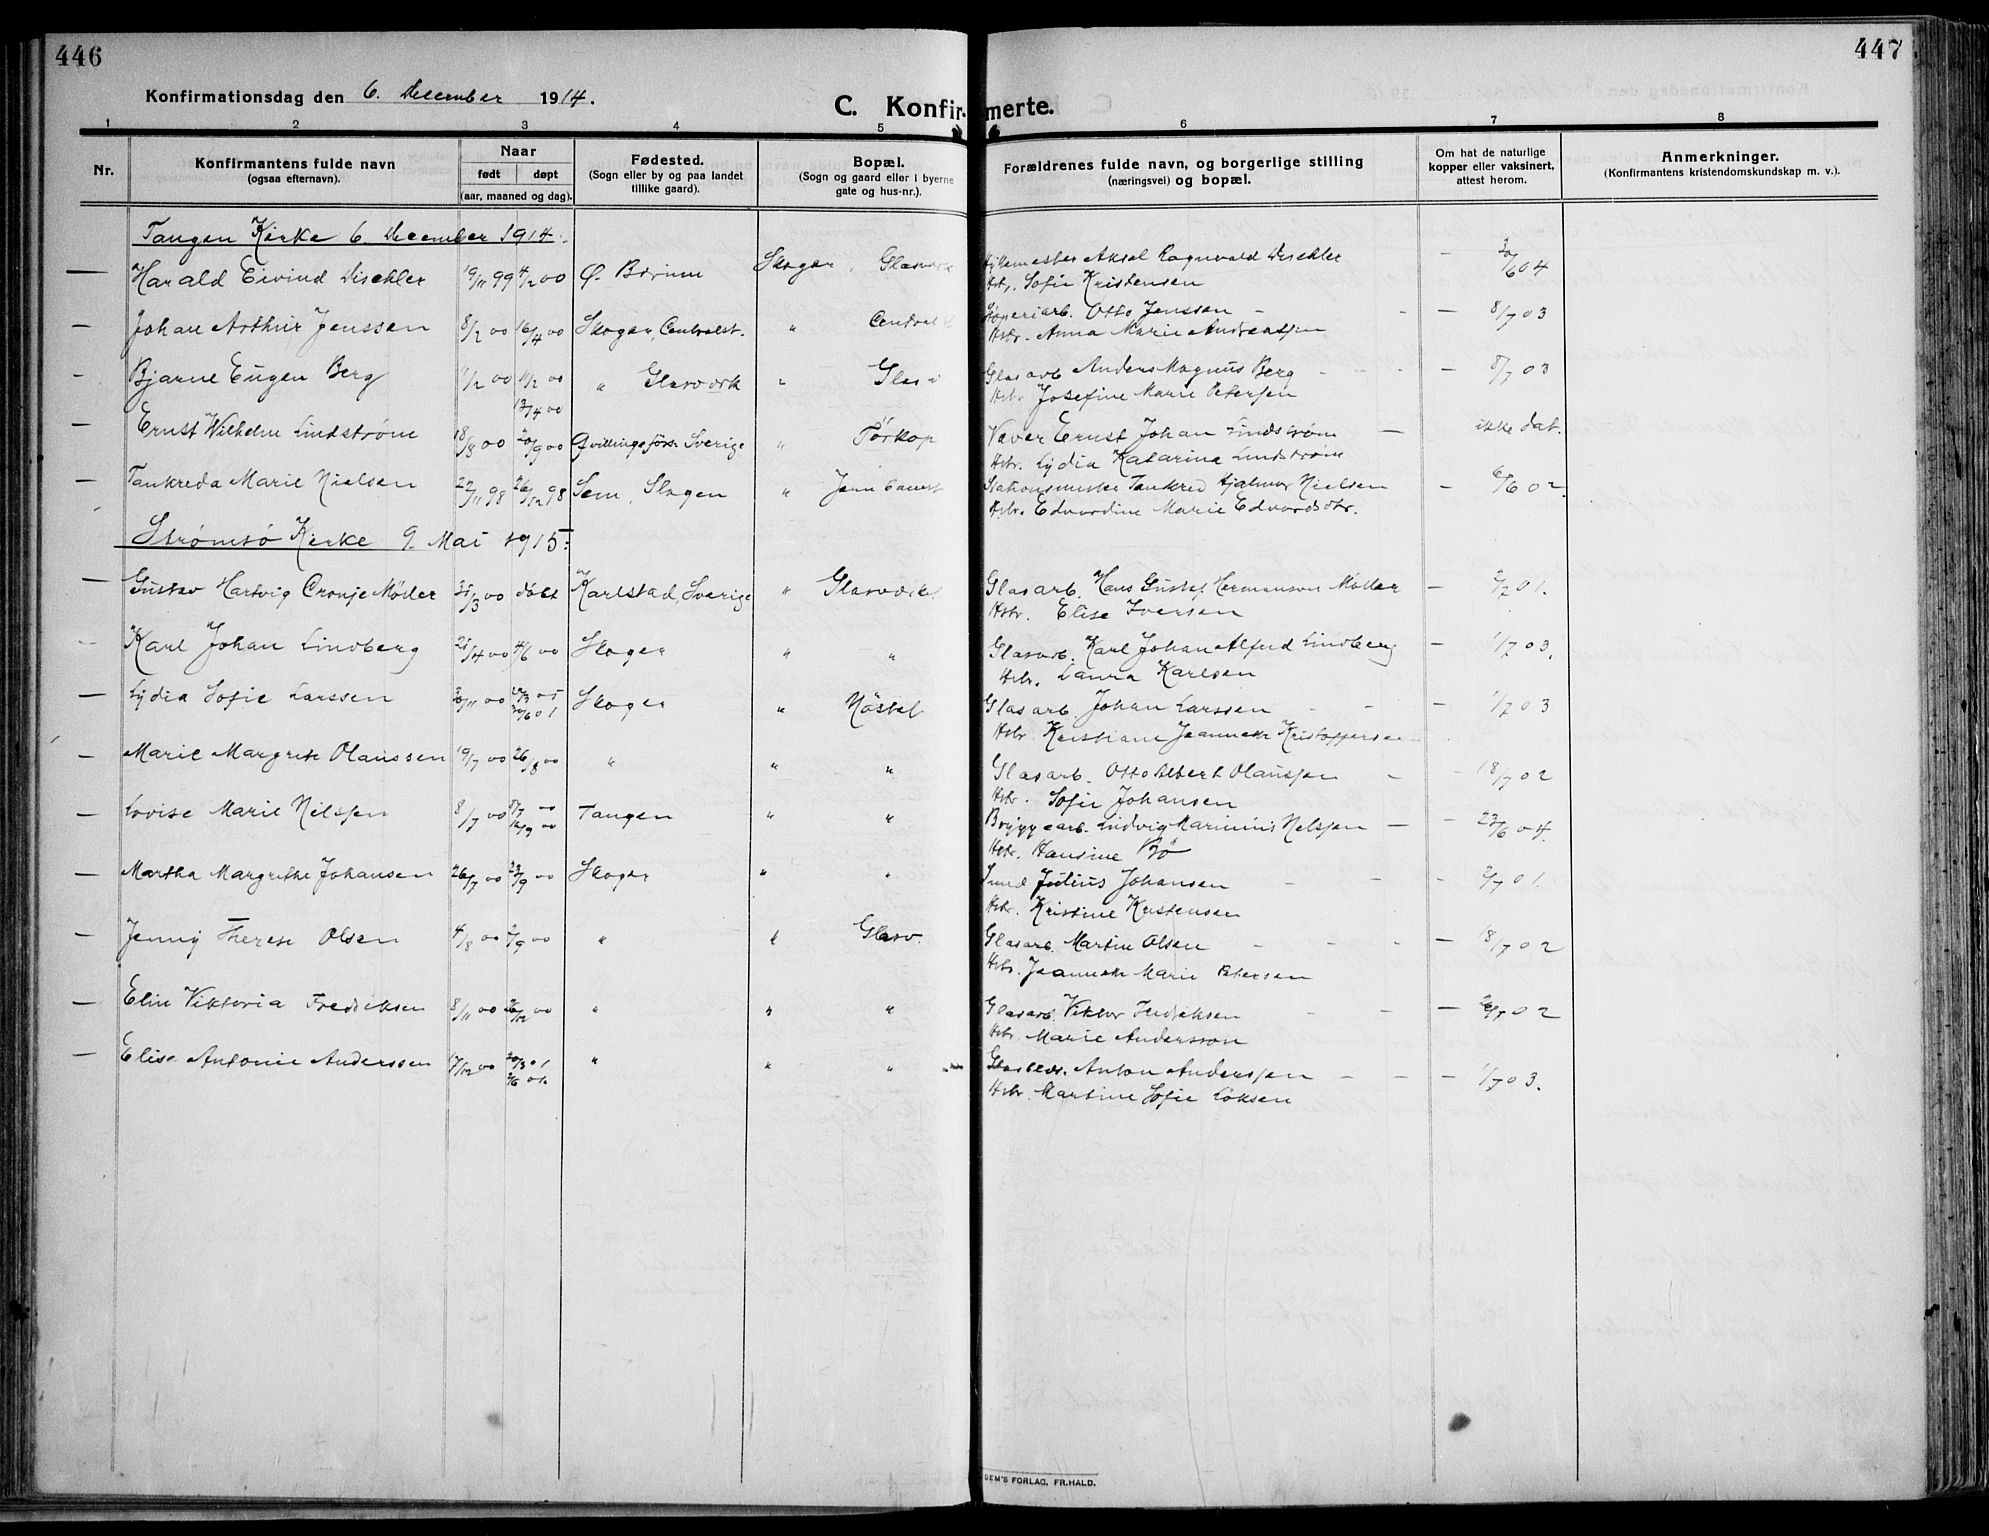 446
447
Konfirmationsdag den 6. December 1914.
C. Konfirmerte.
1 2 3 4 5 6 7 8
Nr.
Konfirmantens fulde navn
(ogsaa efternavn).
Naar
født døpt
(aar, maaned og dag).
Fødested.
(Sogn eller by og paa landet
tillike gaard).
Bopæl.
(Sogn og gaard eller i byerne
gate og hus-nr.).
Forældrenes fulde navn, og borgerlige stilling
(næringsvei) og bopæl.
Om hat de naturlige
kopper eller vaksinert,
attest herom.
Anmerkninger.
(Konfirmantens kristendomskundskap m. v.).
Tangen Kirke 6. December 1914.
— Harald Eivind Dischler 19/11 99 4/2 00 Ø. Bærum Skoger, Glasværk Aksel Ragnvald Dischler — 30/6 04
Hstr. Sofie Kristensen
— Johan Arthur Jenssen 8/2 00 16/4 00 Skoger, Centralst. " Otto Jenssen — 8/7 03
Hstr. Anna Marie Andreassen
— Bjarne Eugen Berg 1/2 00 11/2 00 " Glasværk " Glasv Glasarb. Anders Magnus Berg — 8/7 03
13/4 00
Hstr. Josefine Marie Petersen
— Ernst Wilhelm Lindstrøm 18/8 00 20/9 00 Sverige " Tørkop Væver Ernst Johan Lindstrøm — ikke dat.
Hstr. Lydia Katarina Lindstrøm
— Tankreda Marie Nielsen 22/11 98 26/12 98 Sem, Slagen " Stationsmester Tankred Hjalmar Nielsen — 6/6 02.
Hstr. Edvardine Marie Edvardsdtr.
Strømsø Kirke 9. Mai 1915:
— Gustav Hartvig Cronje Møller 31/3 00 døbt Karlstad, Sverige " Glasværk Glasarb. Hans Gustaf Hermanson Møller — 2/7 01.
Hstr. Elise Iversen
— Karl Johan Lindberg 25/4 00 4/6 00 Skoger " " Glasarb. Karl Johan Alfred Lindberg — 1/7 03.
Hstr. Laura Karlsen
— Lydia Sofie Larssen 30/11 00 Skoger " Nøsted Glasarb. Johan Larssen — 1/7 03
30/6 01
Hstr. Kristiane Jeannette
— Marie Margrete Olaussen 19/7 00 26/8 00 " " " Glasarb. Otto Albert Olaussen — 18/7 02
Hstr. Sofie Johansen
— Lovise Marie Nilssen 8/7 00 8/7 00 Tangen " " Bryggearb. Ludvig Marinius Nelssen — 23/6 04.
16/9 00
Hstr. Hansine Bø
— Martha Margrethe Johansen 26/7 00 23/9 00 Skoger " " Smed Julius Johansen — 2/7 01.
Hstr. Kristine Kristensen
— Jenny Therese Olsen 4/8 00 2/9 00 " " Glasv. Glasarb. Martin Olsen — 18/7 02
Hstr. Jeannette Marie Petersen
— Elin Viktoria Fredriksen 8/11 00 26/12 00 " " " Glasarb. Viktor Fredriksen — /7 02
Hstr. Marie Andersson
— Elise Antonie Anderssen 17/12 00 20/3 01 " " " Anton Anderssen — 1/7 03.
2/6 01.
Hstr. Martine Sofie Løksen
SEM'S FORLAG. FR.HALD.